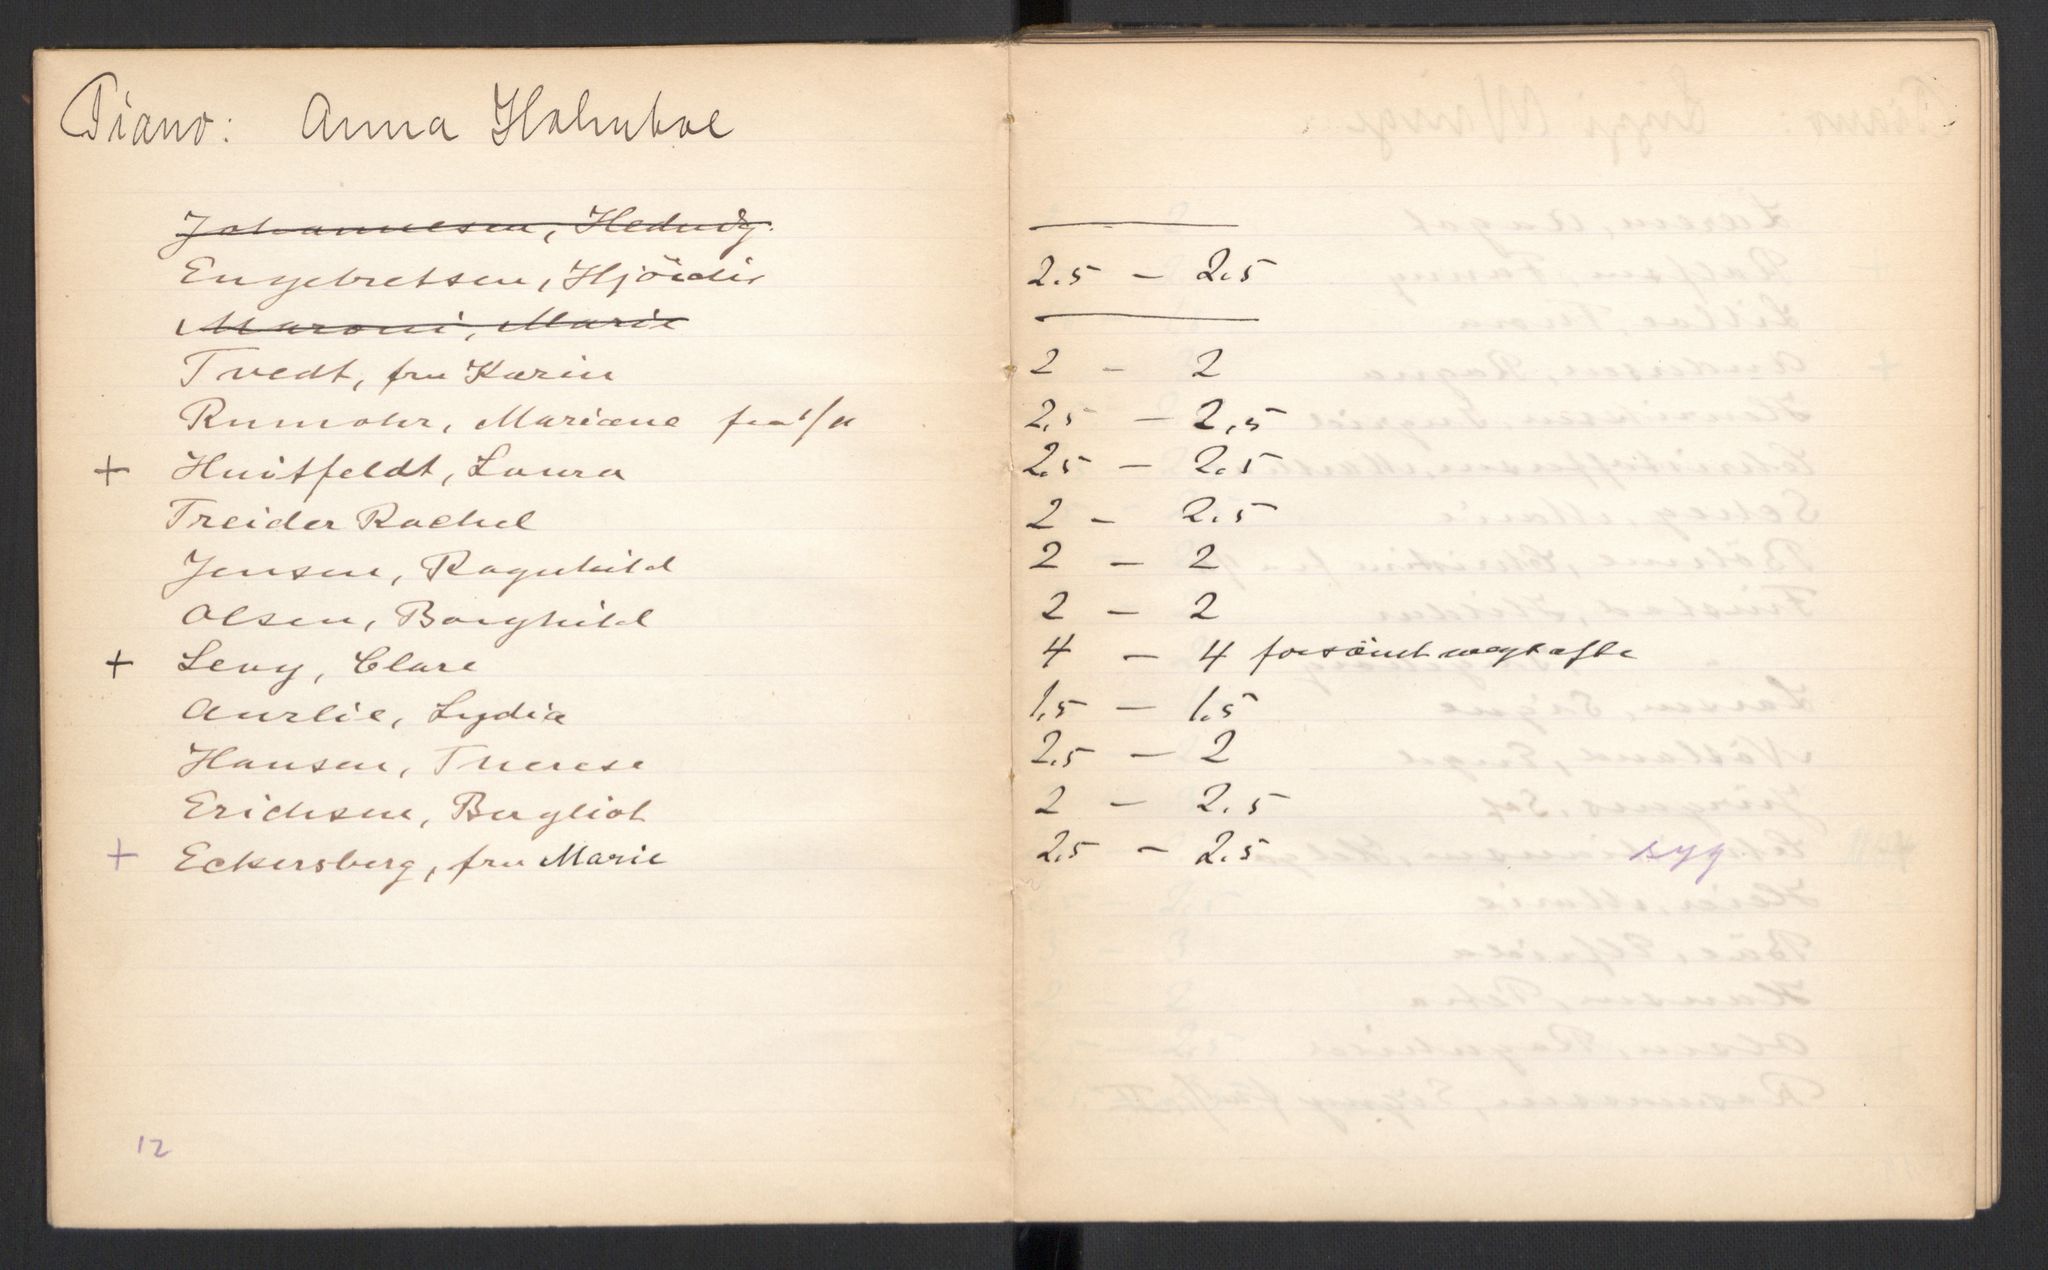 Piano: Anna Holmboe
Johannessen, Hedvig. ———
Engebretsen, Hjördis 2.5 — 2.5
Maroni, Marie ———
Tvedt, fru Karin 2 - 2
Rumohr, Mariane fra 1/11 2,5 — 2,5
+ Huitfeldt, Laura 2.5 — 2.5
Treider Rachel 2 — 2.5
Jensen, Ragnhild 2 — 2
Olsen, Borghild 2 — 2
+ Levy, Clare 4 — 4 forsömt
Aurlie, Lydia 1,5 — 1.5
Hansen, Therese 2.5 — 2
Erichsen, Bergliot 2 — 2.5
+ Eckersberg, fru Marie 2.5 — 2.5 syg
12